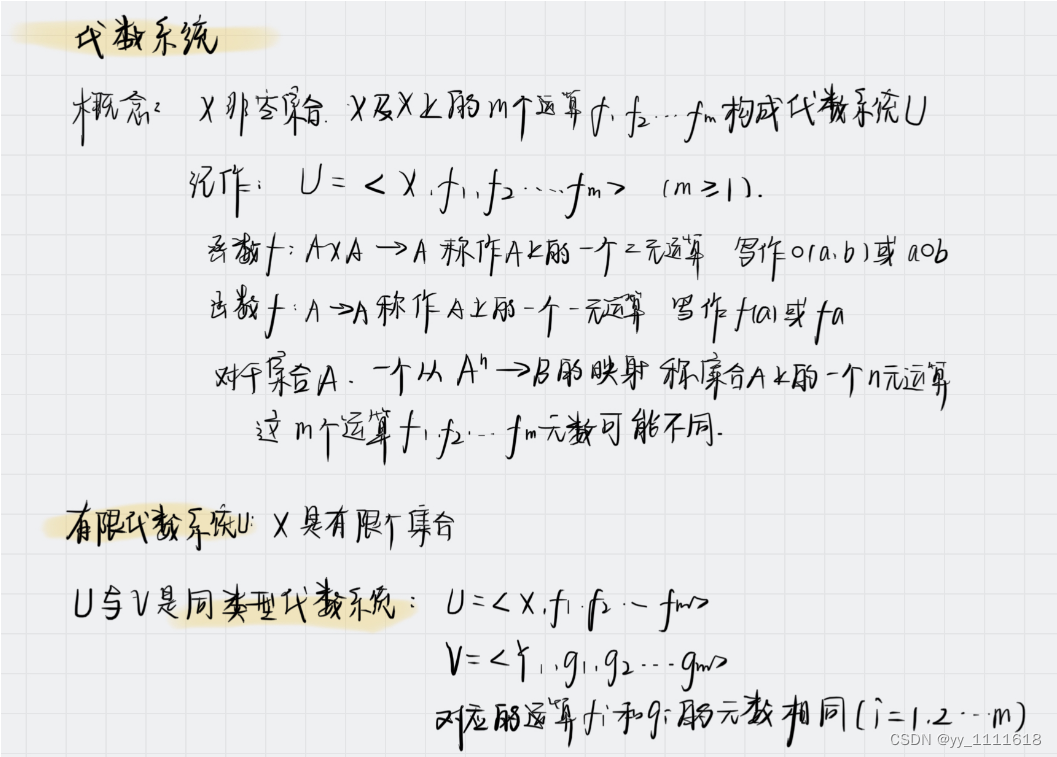 代数系统
概念: X非空集合. X及X上的m个运算 f₁ f₂ … fₘ 构成代数系统U
记作: U = < X, f₁, f₂ …, fₘ > (m ≥ 1).
函数f: A×A → A 称作A上的一个二元运算 写作 ∘(a,b) 或 a∘b
函数f: A → A 称作A上的一个一元运算 写作 f(a) 或 fa
对于集合A, 一个从 Aⁿ → B的映射 称集合A上的一个n元运算
这m个运算 f₁, f₂ … fₘ 元数可能不同.
有限代数系统U: X是有限个集合
U与V是同类型代数系统: U = < X, f₁, f₂ … fₘ>
V = < Y, g₁, g₂ … gₘ>
对应的运算 fᵢ 和 gᵢ 的元数相同 (i = 1, 2 … m)
CSDN @yy_1111618